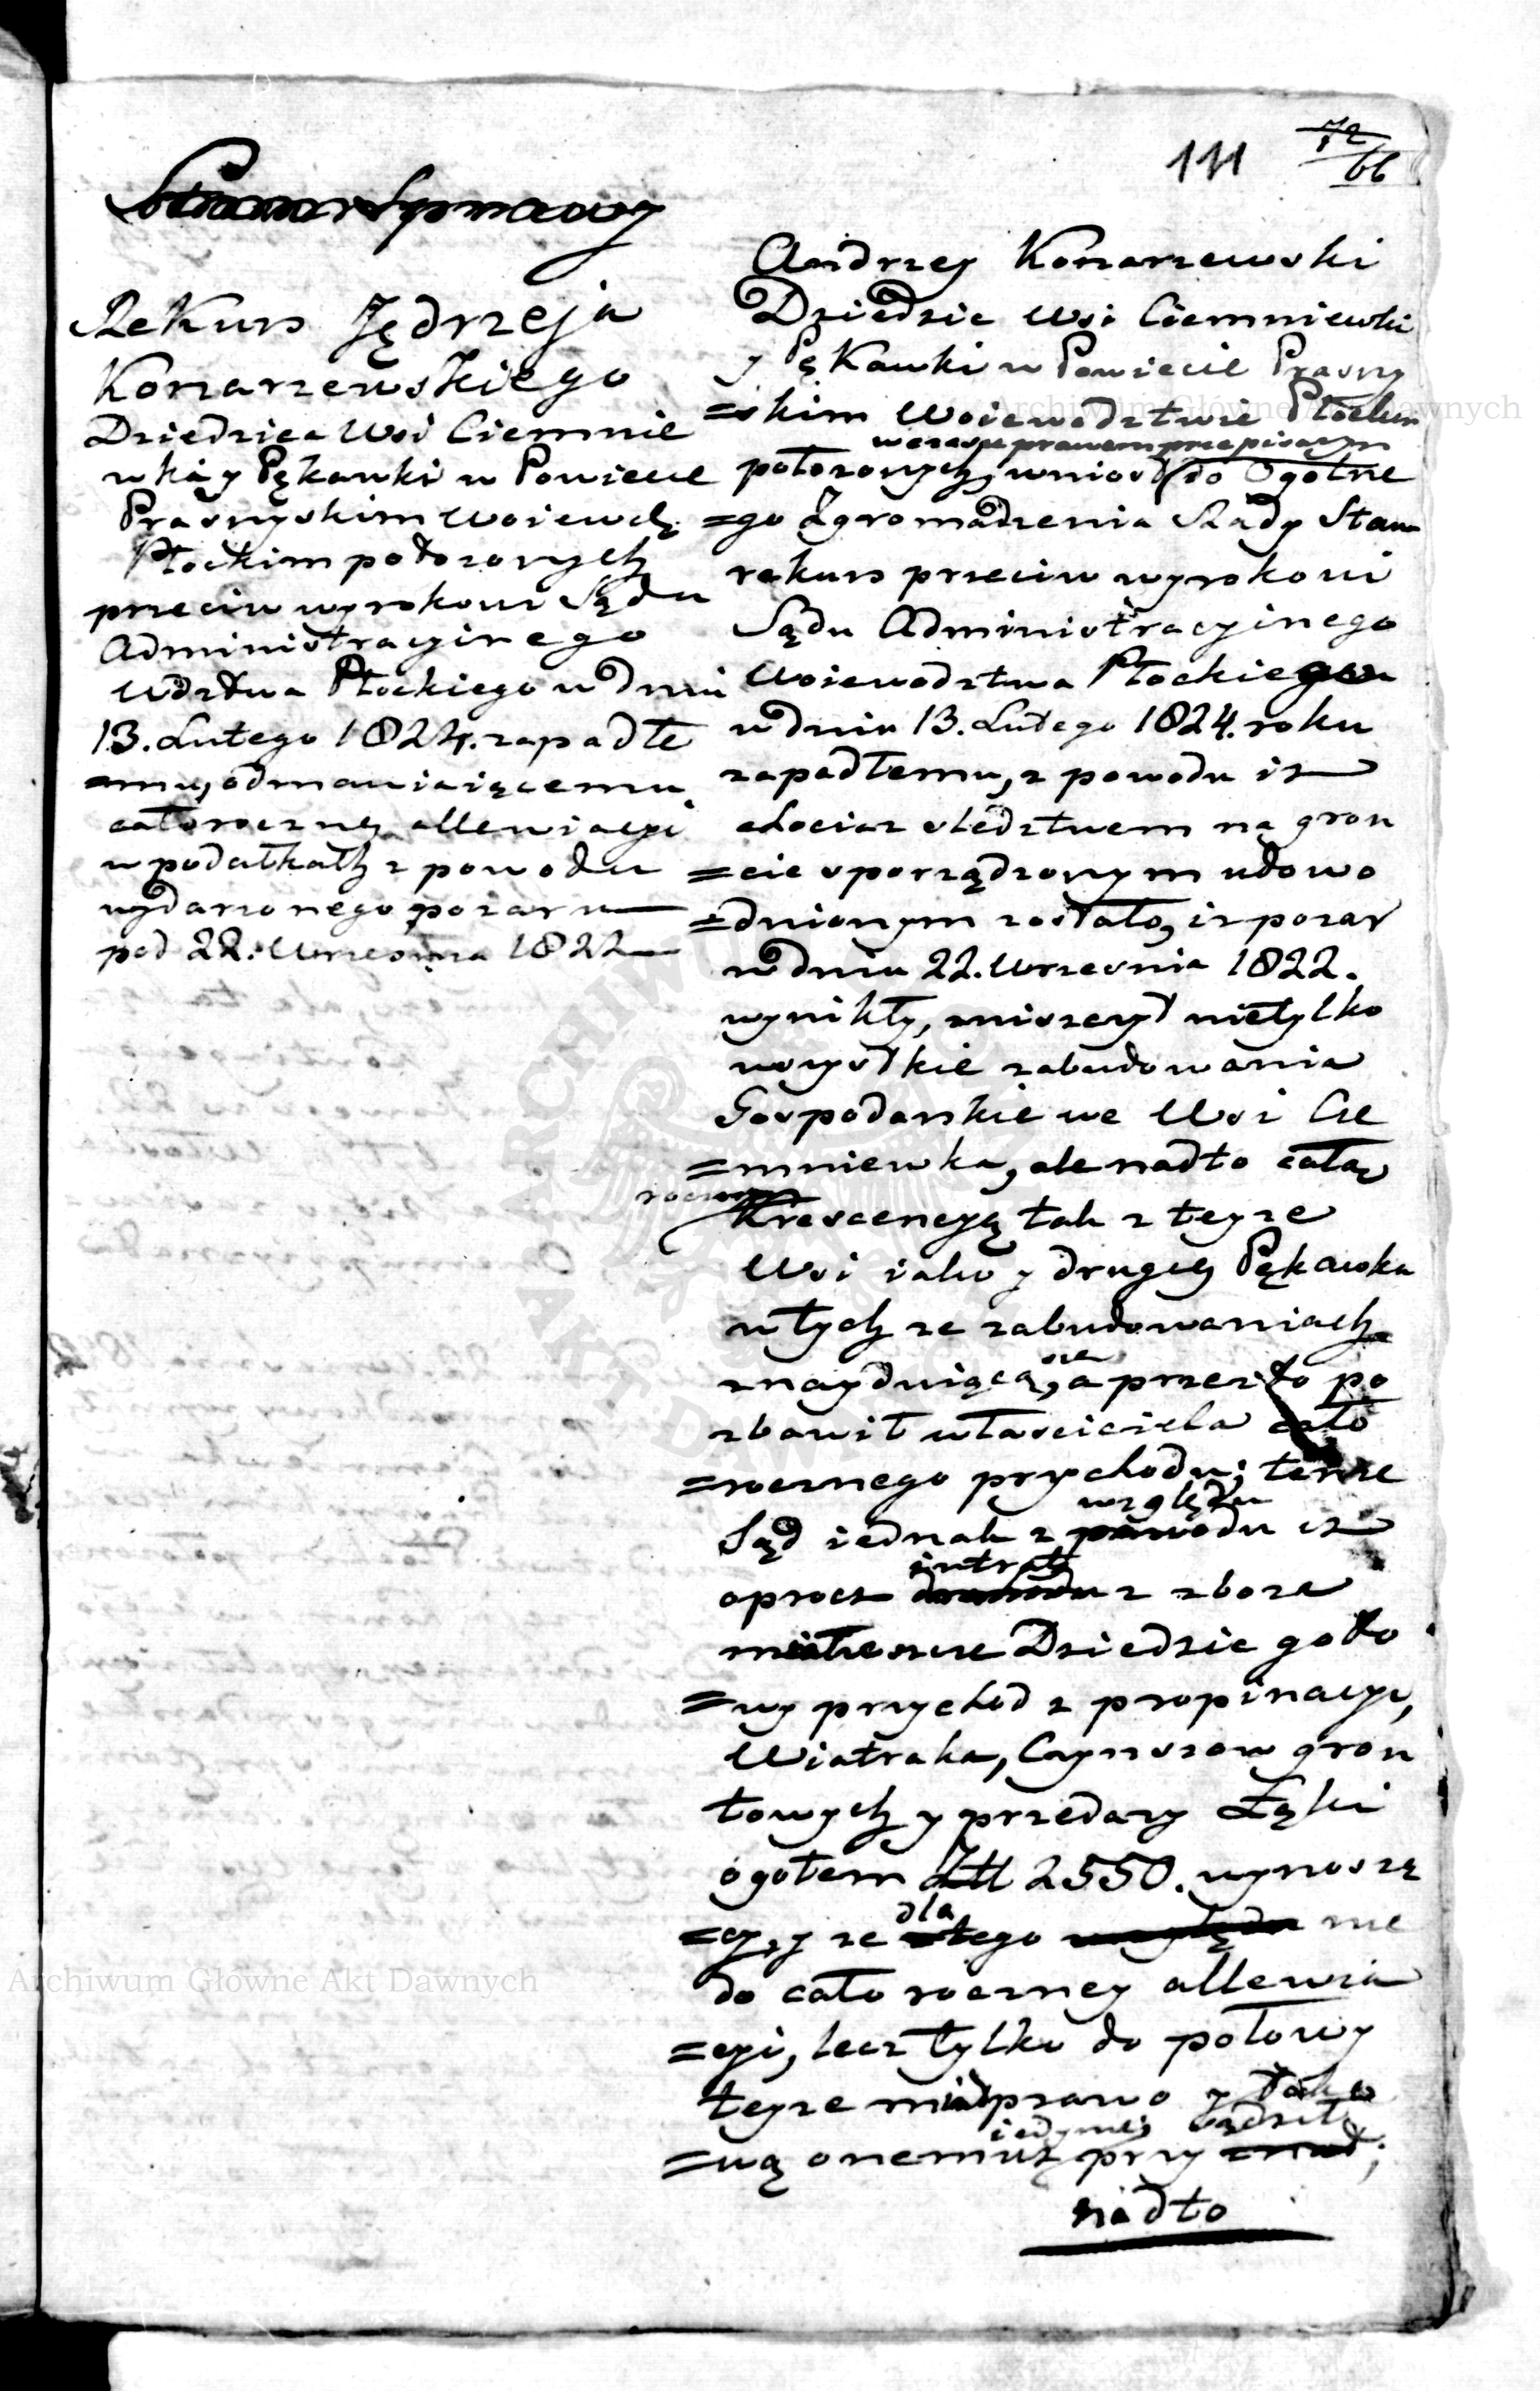 111 72/66
Stan Sprawy
Rekurs Jędrzeja
Konarzewskiego
Dziedzica Wsi Ciemnie
wka y Pękawki w Powiecie
Prasnyskim Woiewdz.
Płockim położonych
przeciw wyrokowi Sądu
Administracyinego
Wdztwa Płockiego w dniu
13. Lutego 1824. zapadłe
=mu, odmawiaiącemu
całoroczney allewiacyi
w podatkach z powodu
wydarzonego pożaru
pod 22. Września 1822
Andrzey Konarzewski
Dziedzic Wsi Ciemniewki
y Pękawki w Powiecie Prasny
=skim Woiewodztwie Płockim
w czasie prawem przepisanym
położonych, wniosł do Ogolne
=go Zgromadzenia Rady Stanu
rekurs przeciw wyrokowi
Sądu Administracyinego
Woiewodztwa Płockiego
w dniu 13. Lutego 1824. roku
zapadłemu, z powodu iż
chociaż śledztwem na gron
=cie sporządzonym udowo
=dnionym zostało, iż pożar
w dniu 22. Września 1822.
wynikły, zniszczył nietylko
wszystkie zabudowania
Gospodarskie we Wsi Cie
=mniewka, ale nadto całą
roczną
Krescencyą tak z teyże
Wsi iako y drugiey Pękawka
w tych że zabudowaniach
się
znayduiącą, a przezto po
zbawił właściciela cało
=rocznego przychodu; tenże
względu
Sąd iednak z powodu iż
intraty
oprocz dochodu z zboża
miał ieszcze Dziedzic goto
=wy przychod z propinacyi,
Wiatraka, Czynszow gron
towych y przedaży Łąki
ogołem Złł 2550. wynoszą
dla
=cy, y że z tego względu nie
do całoroczney allewia
=cyi, lecz tylko do połowy
teyże miał prawo y tako
iedynie sądził
=wą onemuż przyznał;
nadto
Archiwum Główne Akt Dawnych
Archiwum Główne Akt Dawnych
ARCHIWUM GŁÓWNE AKT DAWNYCH